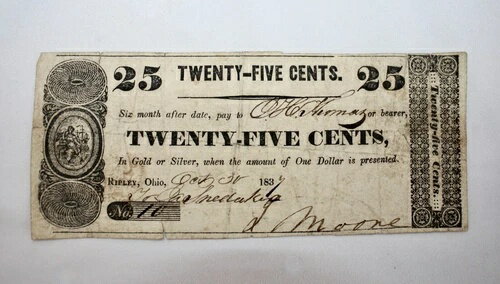 25 TWENTY-FIVE CENTS. 25
Six month after date, pay to or bearer,
TWENTY-FIVE CENTS,
In Gold or Silver, when the amount of One Dollar is presented.
RIPLEY, Ohio, Oct 30 1837
No. 10
Moore
Twenty-five Cents.